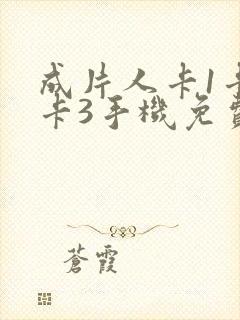 成片人卡1卡
卡3手機免費
蒼霞